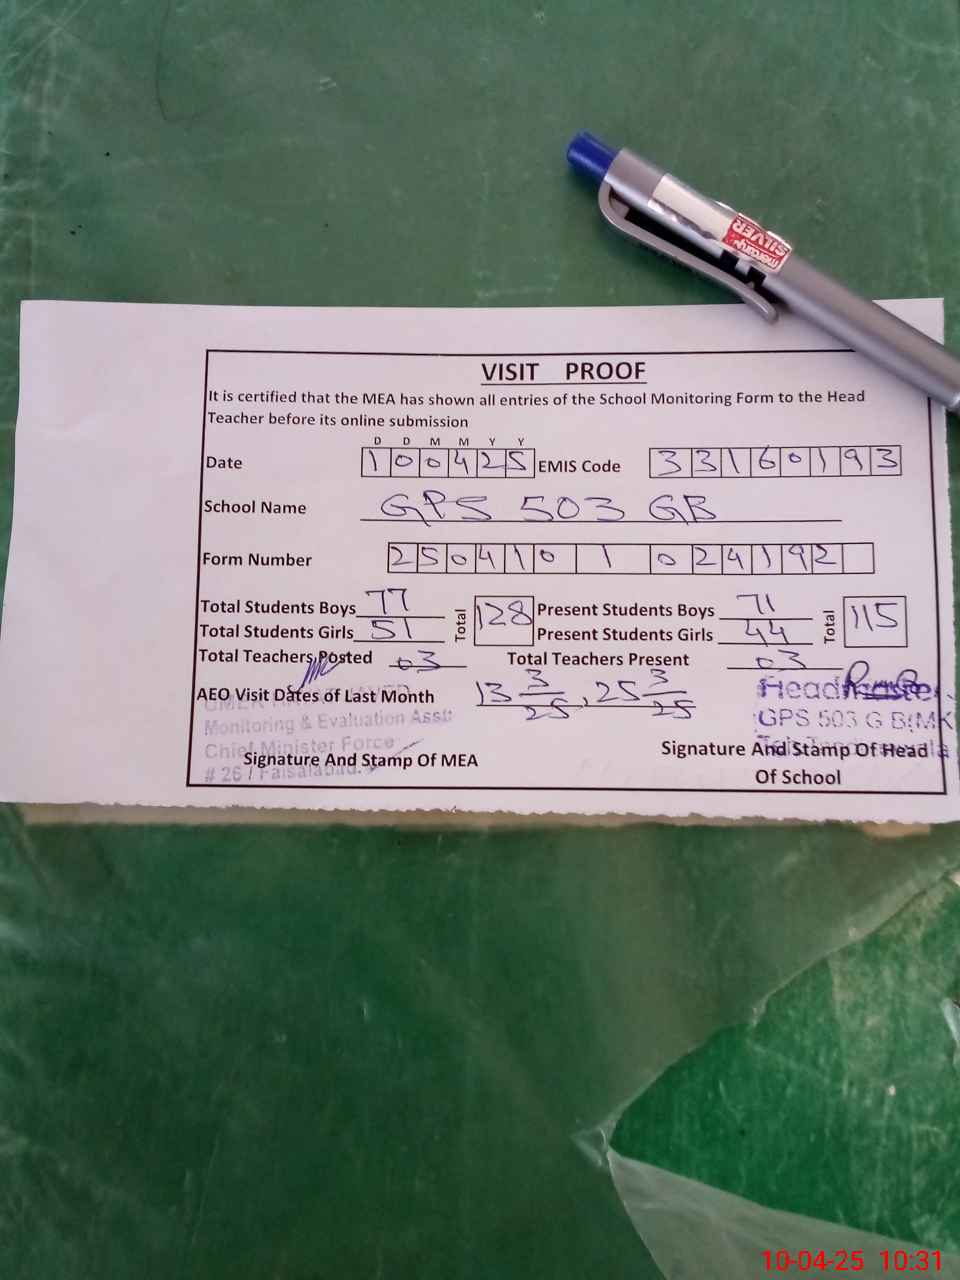 mercury
SILVER
VISIT PROOF
It is certified that the MEA has shown all entries of the School Monitoring Form to the Head
Teacher before its online submission
D D M M Y Y
Date 100425 EMIS Code 33160193
School Name GPS 503 GB
Form Number 250410 1 024192
Total Students Boys 77 Total 128 Present Students Boys 71 Total 115
Total Students Girls 51 Present Students Girls 44
Total Teachers Posted 03 Total Teachers Present 03
AEO Visit Dates of Last Month 13 3/25, 25 3/25
Headmaster
Monitoring & Evaluation Asst:
GPS 503 G B(MK
Chief Minister Force
# 26 / Faisalabad.
Signature And Stamp Of MEA
Signature And Stamp Of Head
Of School
10-04-25 10:31